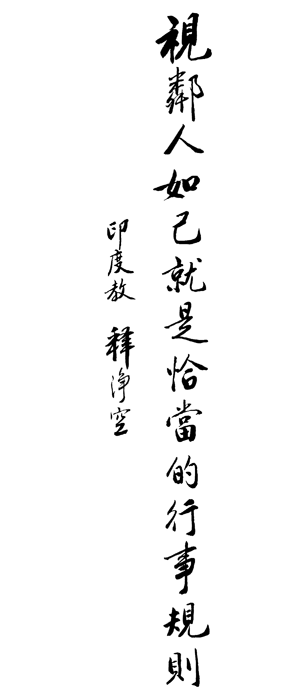 視鄰人如己就是恰當的行事規則
印度教 釋淨空